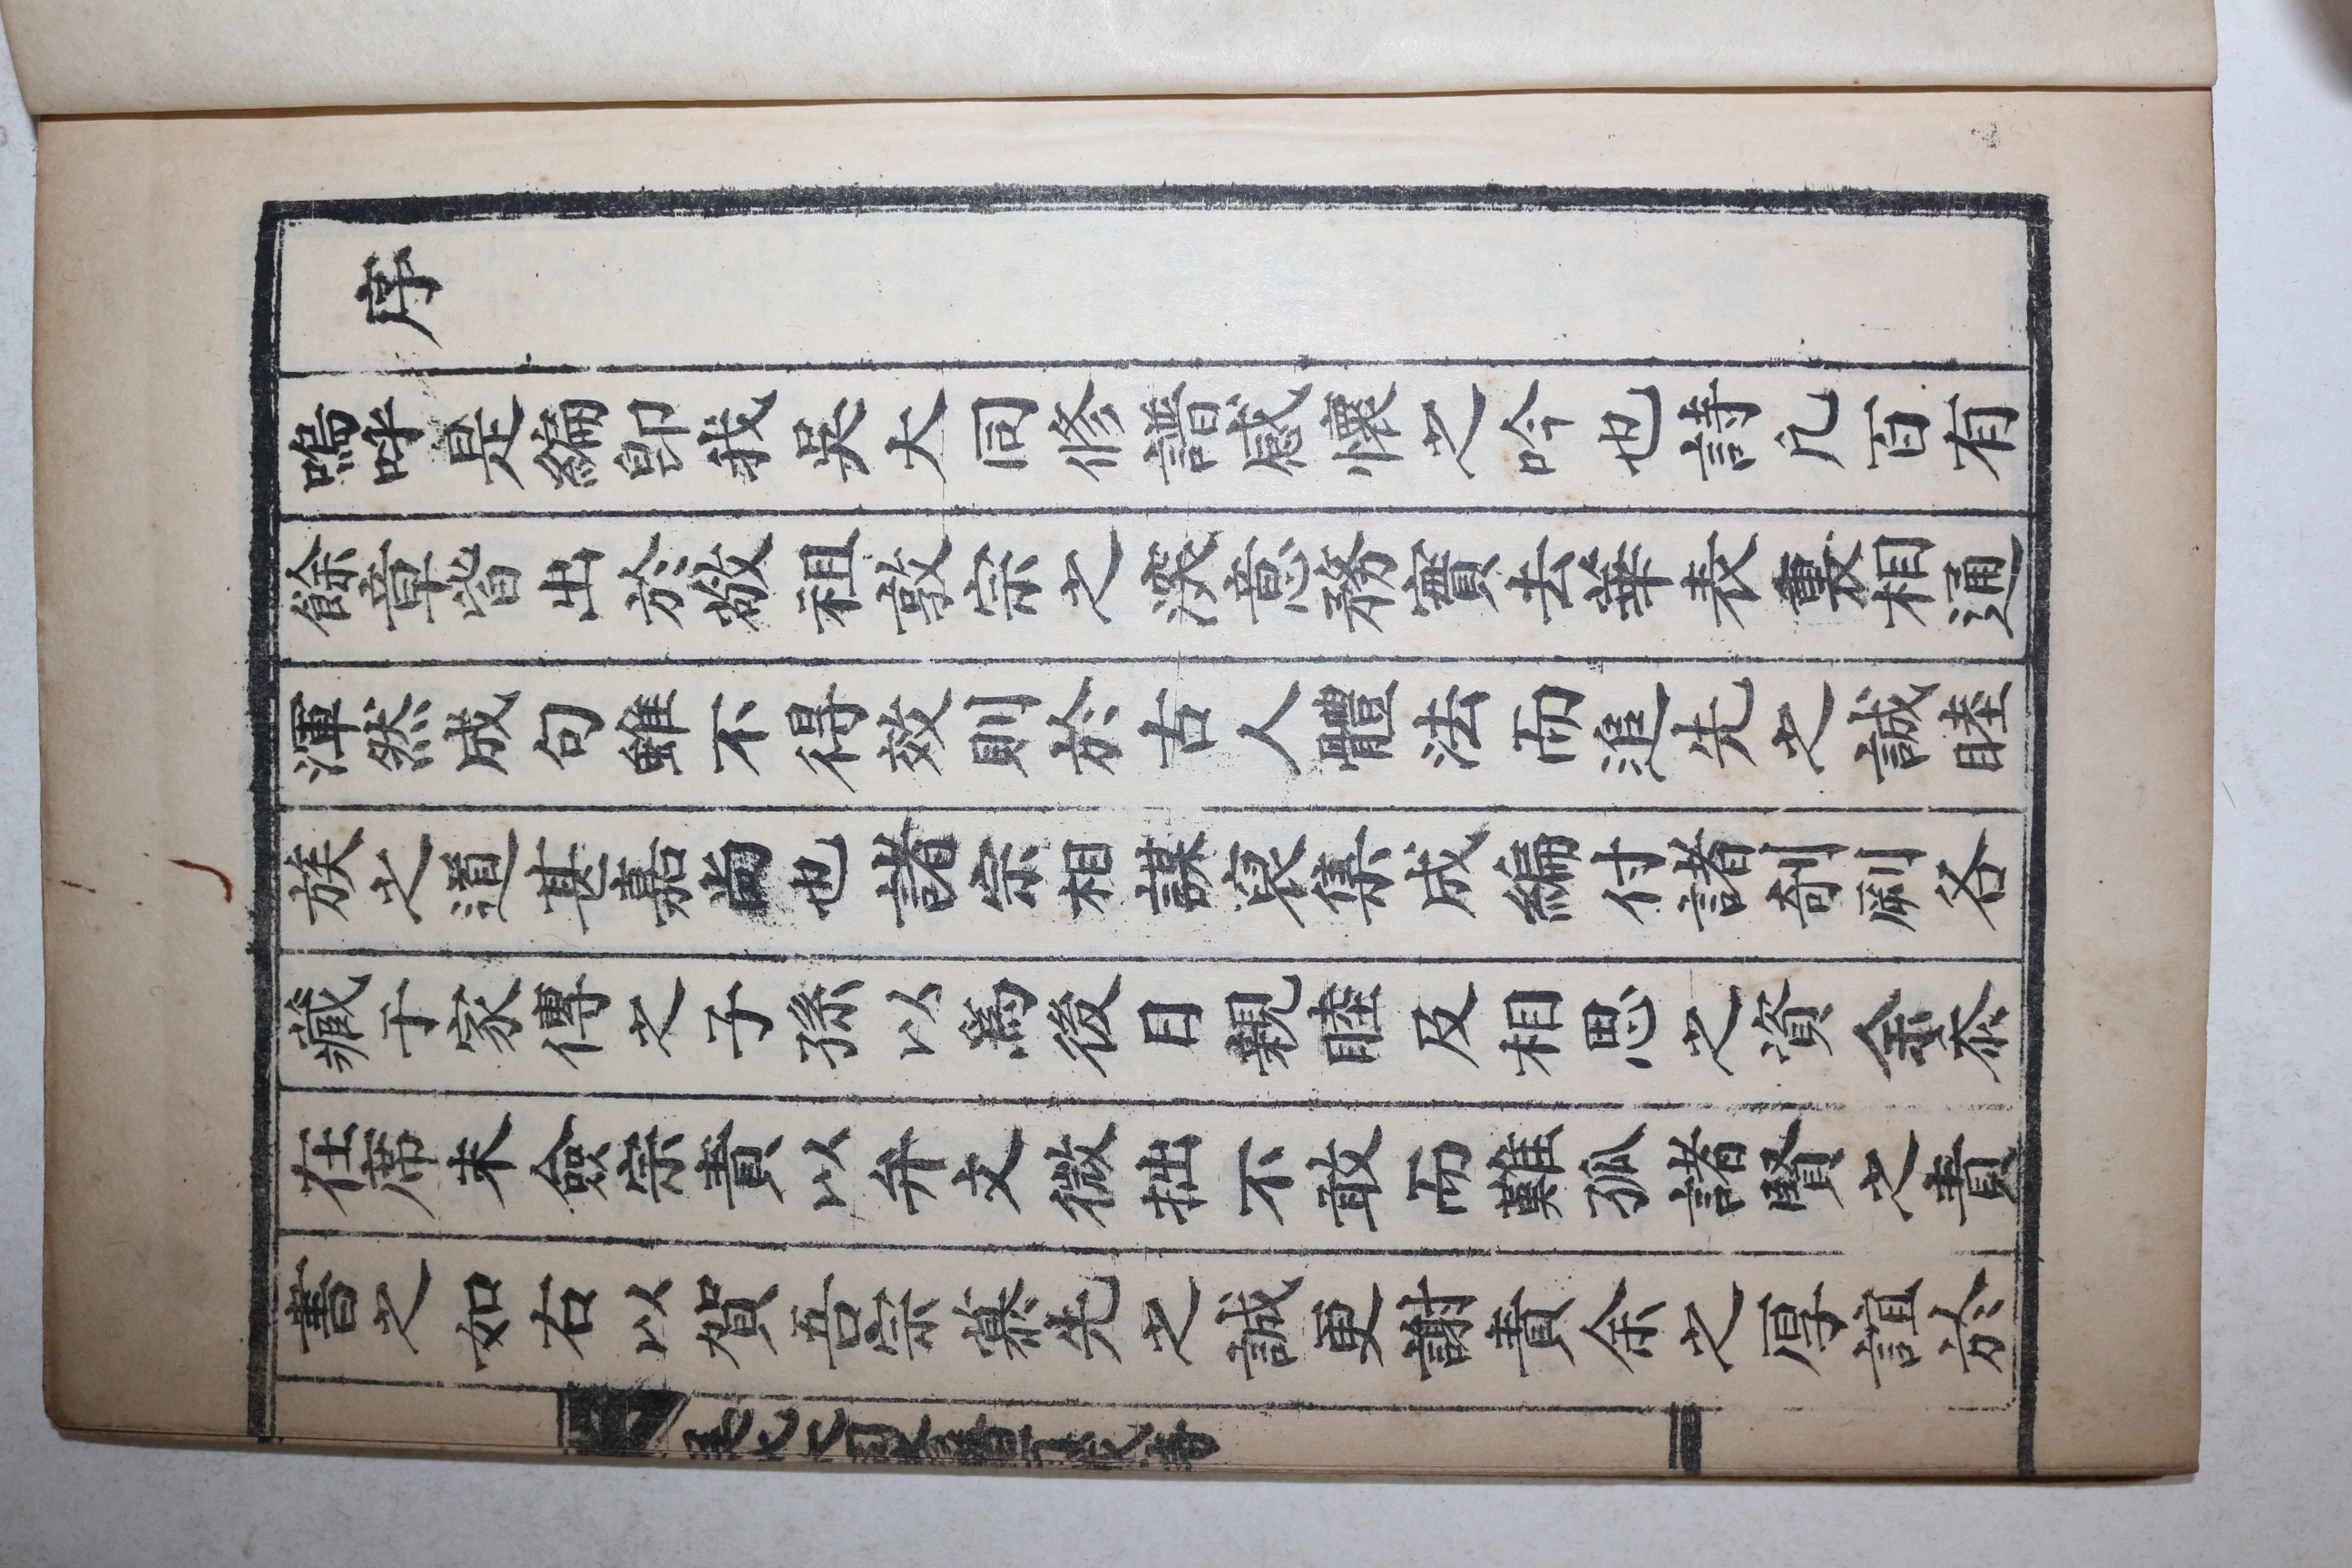 序
嗚呼是編卽我吳大同修譜感懷之吟也詩凡百有
餘章皆出於敬祖敬宗之深意務實去華表裏相通
渾然成句雖不得效則於古人體法而追先之誠睦
族之道甚嘉尙也諸宗相謀裒集成編付諸剞劂各
藏于家傳之子孫以爲後日親睦及相思之資余忝
在席末僉宗責以弁文徵拙不敢而難孤諸賢之責
書之如右以賀吾宗慕先之誠更謝責余之厚誼於